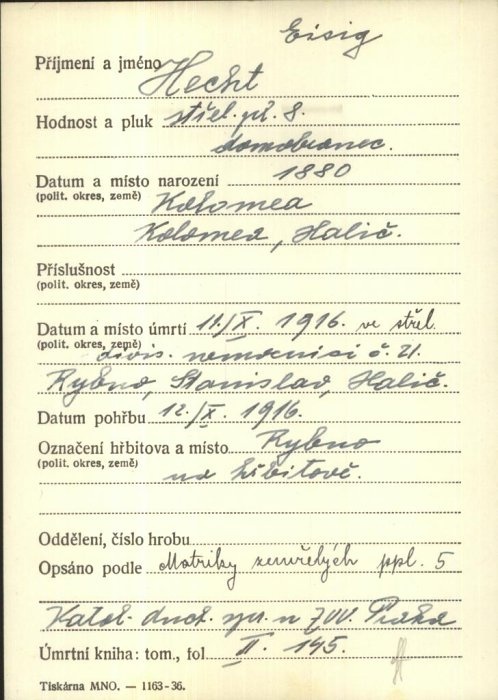 Eisig
Příjmení a jméno Hecht
Hodnost a pluk střel. pl. 8.
domobranec.
Datum a místo narození 1880
(polit. okres, země) Kolomea
Kolomea, Halič.
Příslušnost
(polit. okres, země)
Datum a místo úmrtí 11./X. 1916. ve střel.
(polit. okres, země) divis. nemocnici č. 21.
Rybno, Stanislav, Halič.
Datum pohřbu 12./X. 1916.
Označení hřbitova a místo Rybno
(polit. okres, země) na hřbitově.
Oddělení, číslo hrobu
Opsáno podle Matriky zemřelých ppl. 5
Katol. duch. spr. u ZVV. Praha
Úmrtní kniha: tom., fol. II. 145.
Tiskárna MNO. — 1163-36.